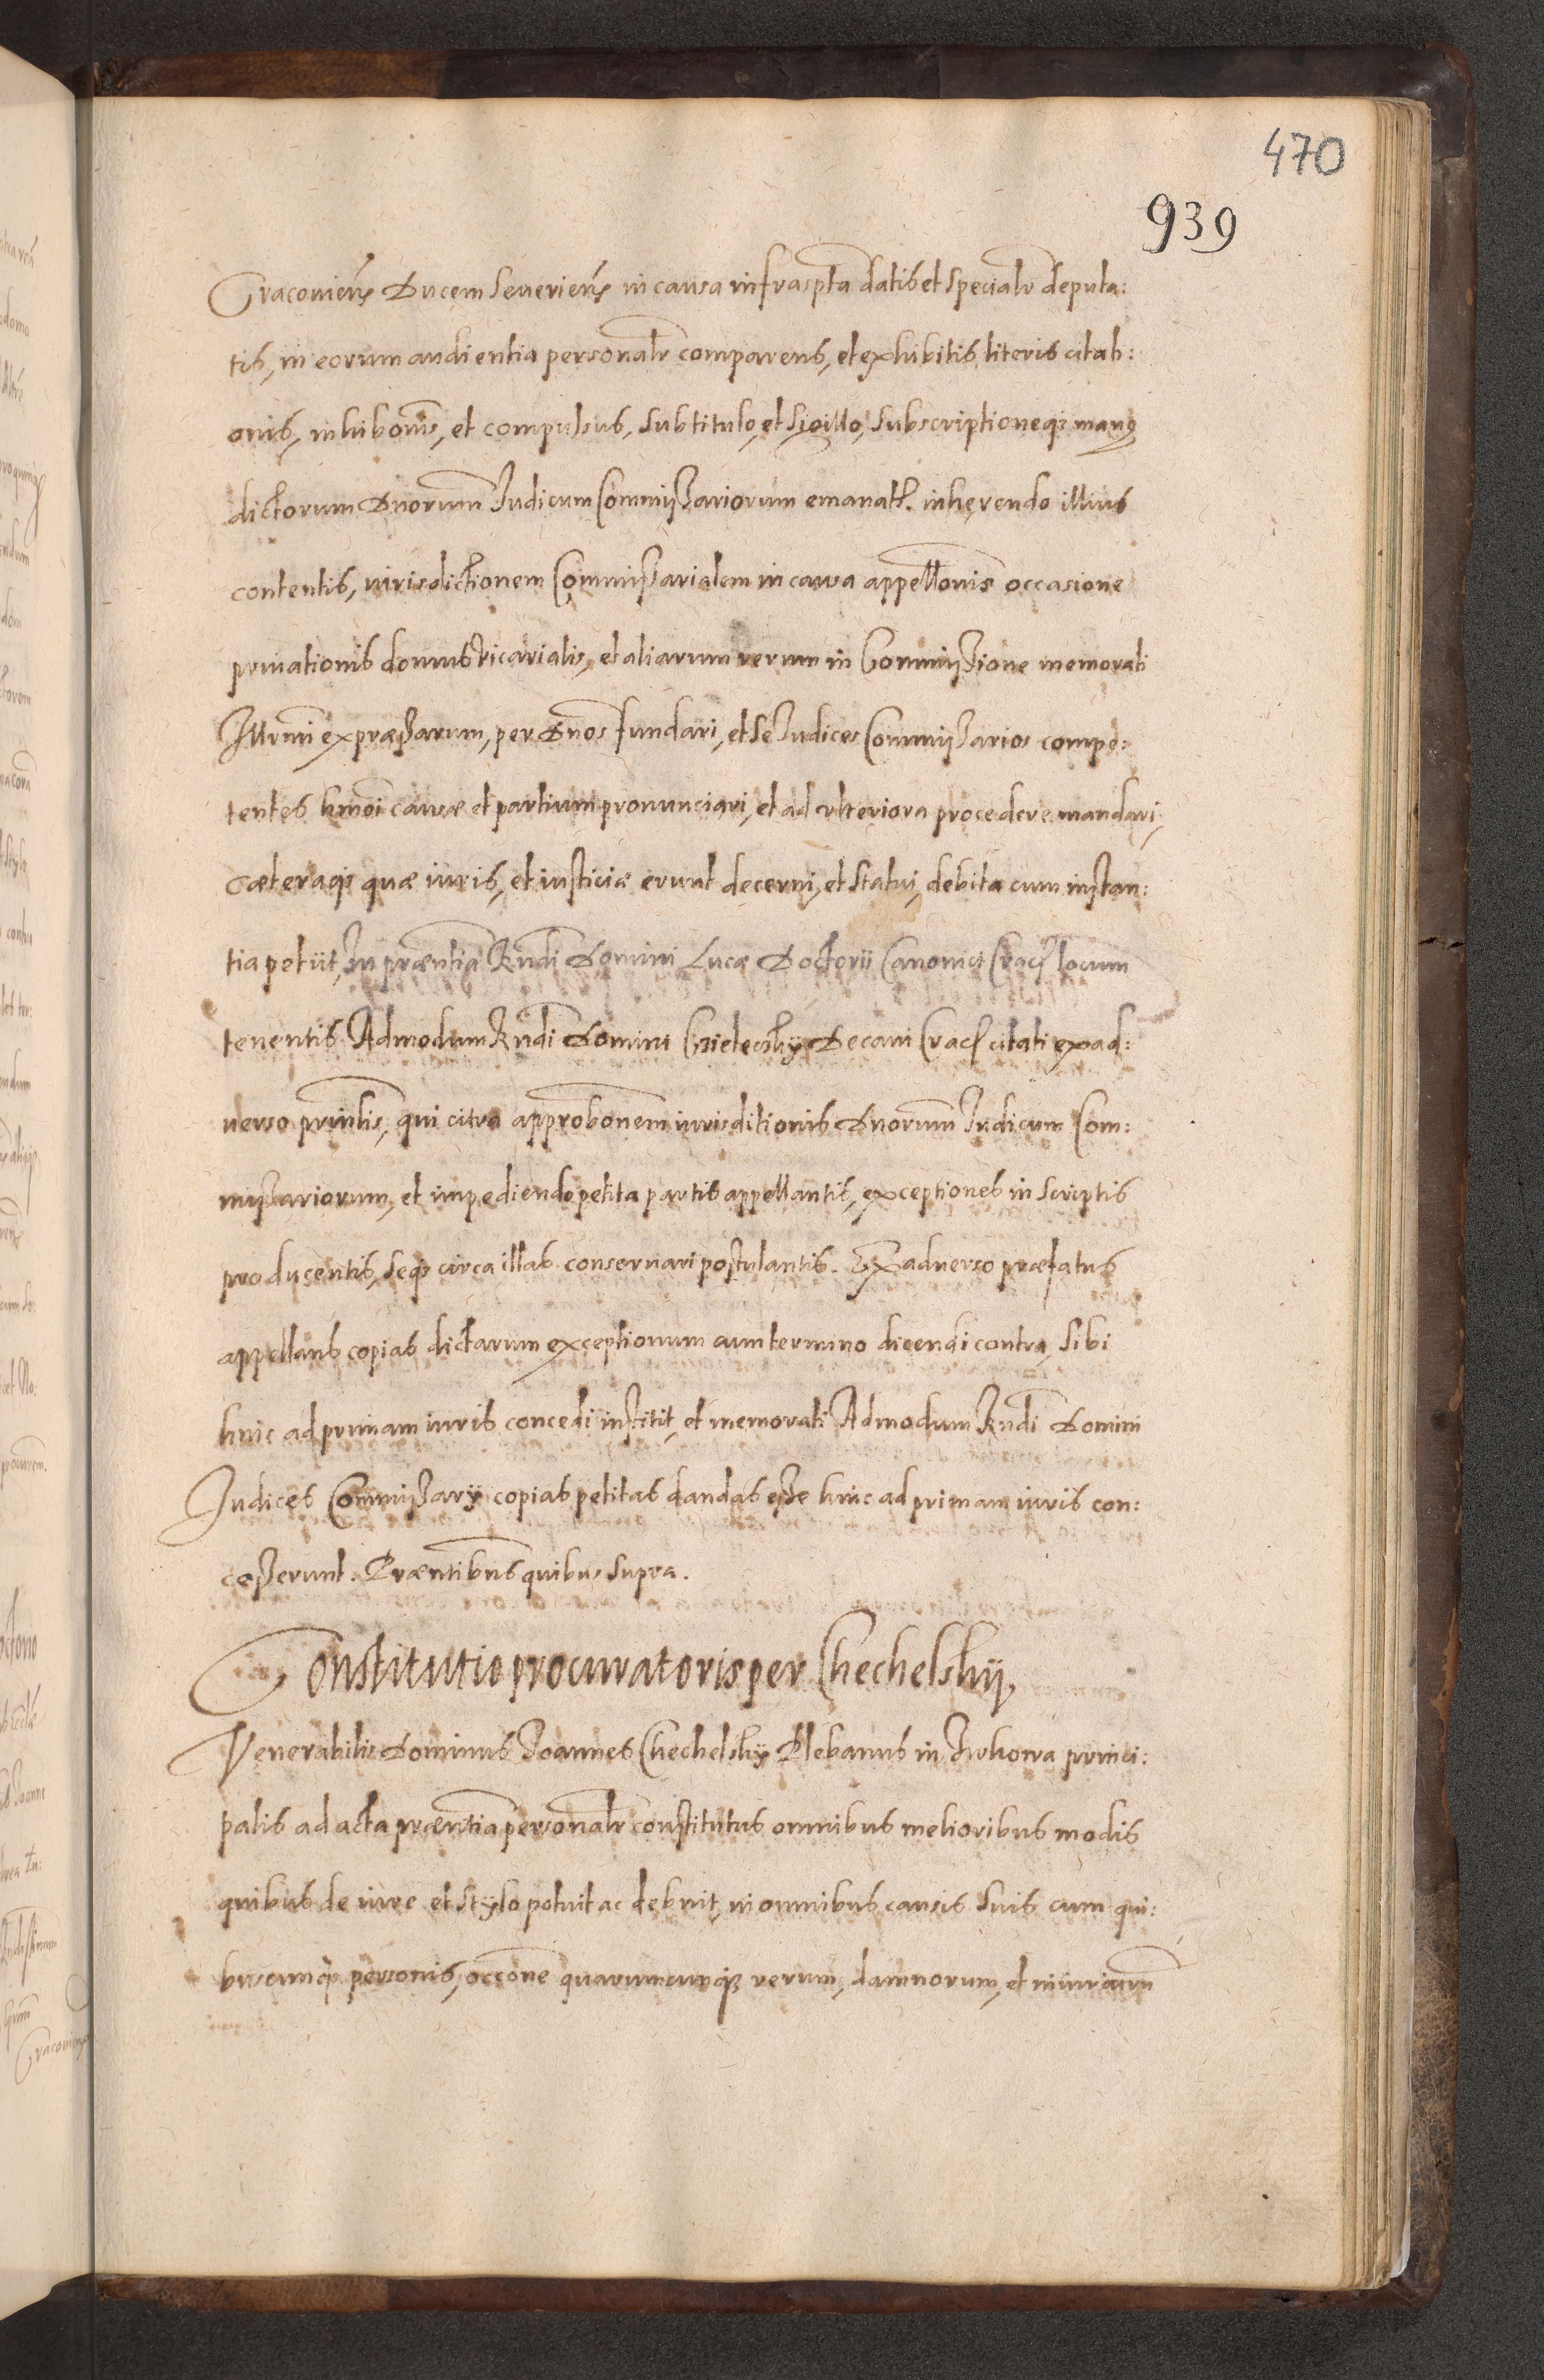 470
939
Cracovieñ Ducem Severieñ in causa infrascpta datis et specialr deputa:
tis, in eorum audientia personalr comparens, et exhibitis literis citati:
onis, inhibonis, et compulsus, sub titulo, et sigillo, subscriptioneq3 manus
dictorum Dnorum Judicum Commissariorum emanat. inhęrendo illius
contentis, iurisdictionem Commissarialem in causa appellonis occasione
privationis domus vicarialis, et aliarum rerum in Commissione memorati
Illrmi expræssarum, per Dnos fundari, et se Judices Commissarios compe:
tentes hmoi causæ et partium pronunciari, et ad ulteriora procedere mandari,
cæteraq3 quæ iuris, et iusticiæ erunt decerni, et statui, debita cum instan:
tia petiit, In præntia Rndi Domini Lucæ Doctorii Canonici Crac locum
tenentis Admodum Rndi Domini Decani Crac citati ex ad:
verso prinlis, qui citra approbonem iurisditionis Dnorum Judicum Com:
missariorum, et impediendo petita partis appellantis, exceptiones in scriptis
producentis, seq3 circa illas conservari postulantis. Ex adverso præfatus
appellans copias dictarum exceptionum cum termino dicendi contra, sibi
hinc ad primam iuris concedi institit, et memorati Admodum Rndi Domini
Judices Commissarÿ copias petitas dandas esse hinc ad primam iuris con:
cesserunt. Præntibus quibus supra.
Constitutio procuratoris per Chechelskÿ,
Venerabilis Dominus Joannes Chechelskÿ Plebanus in princi:
palis ad acta præntia personalr constitutus omnibus melioribus modis
quibus de iure et stylo potuit ac debuit, in omnibus causis suis cum qui:
buscumq3 personis, occone quarumcunq3 rerum, damnorum, et iniuriarum